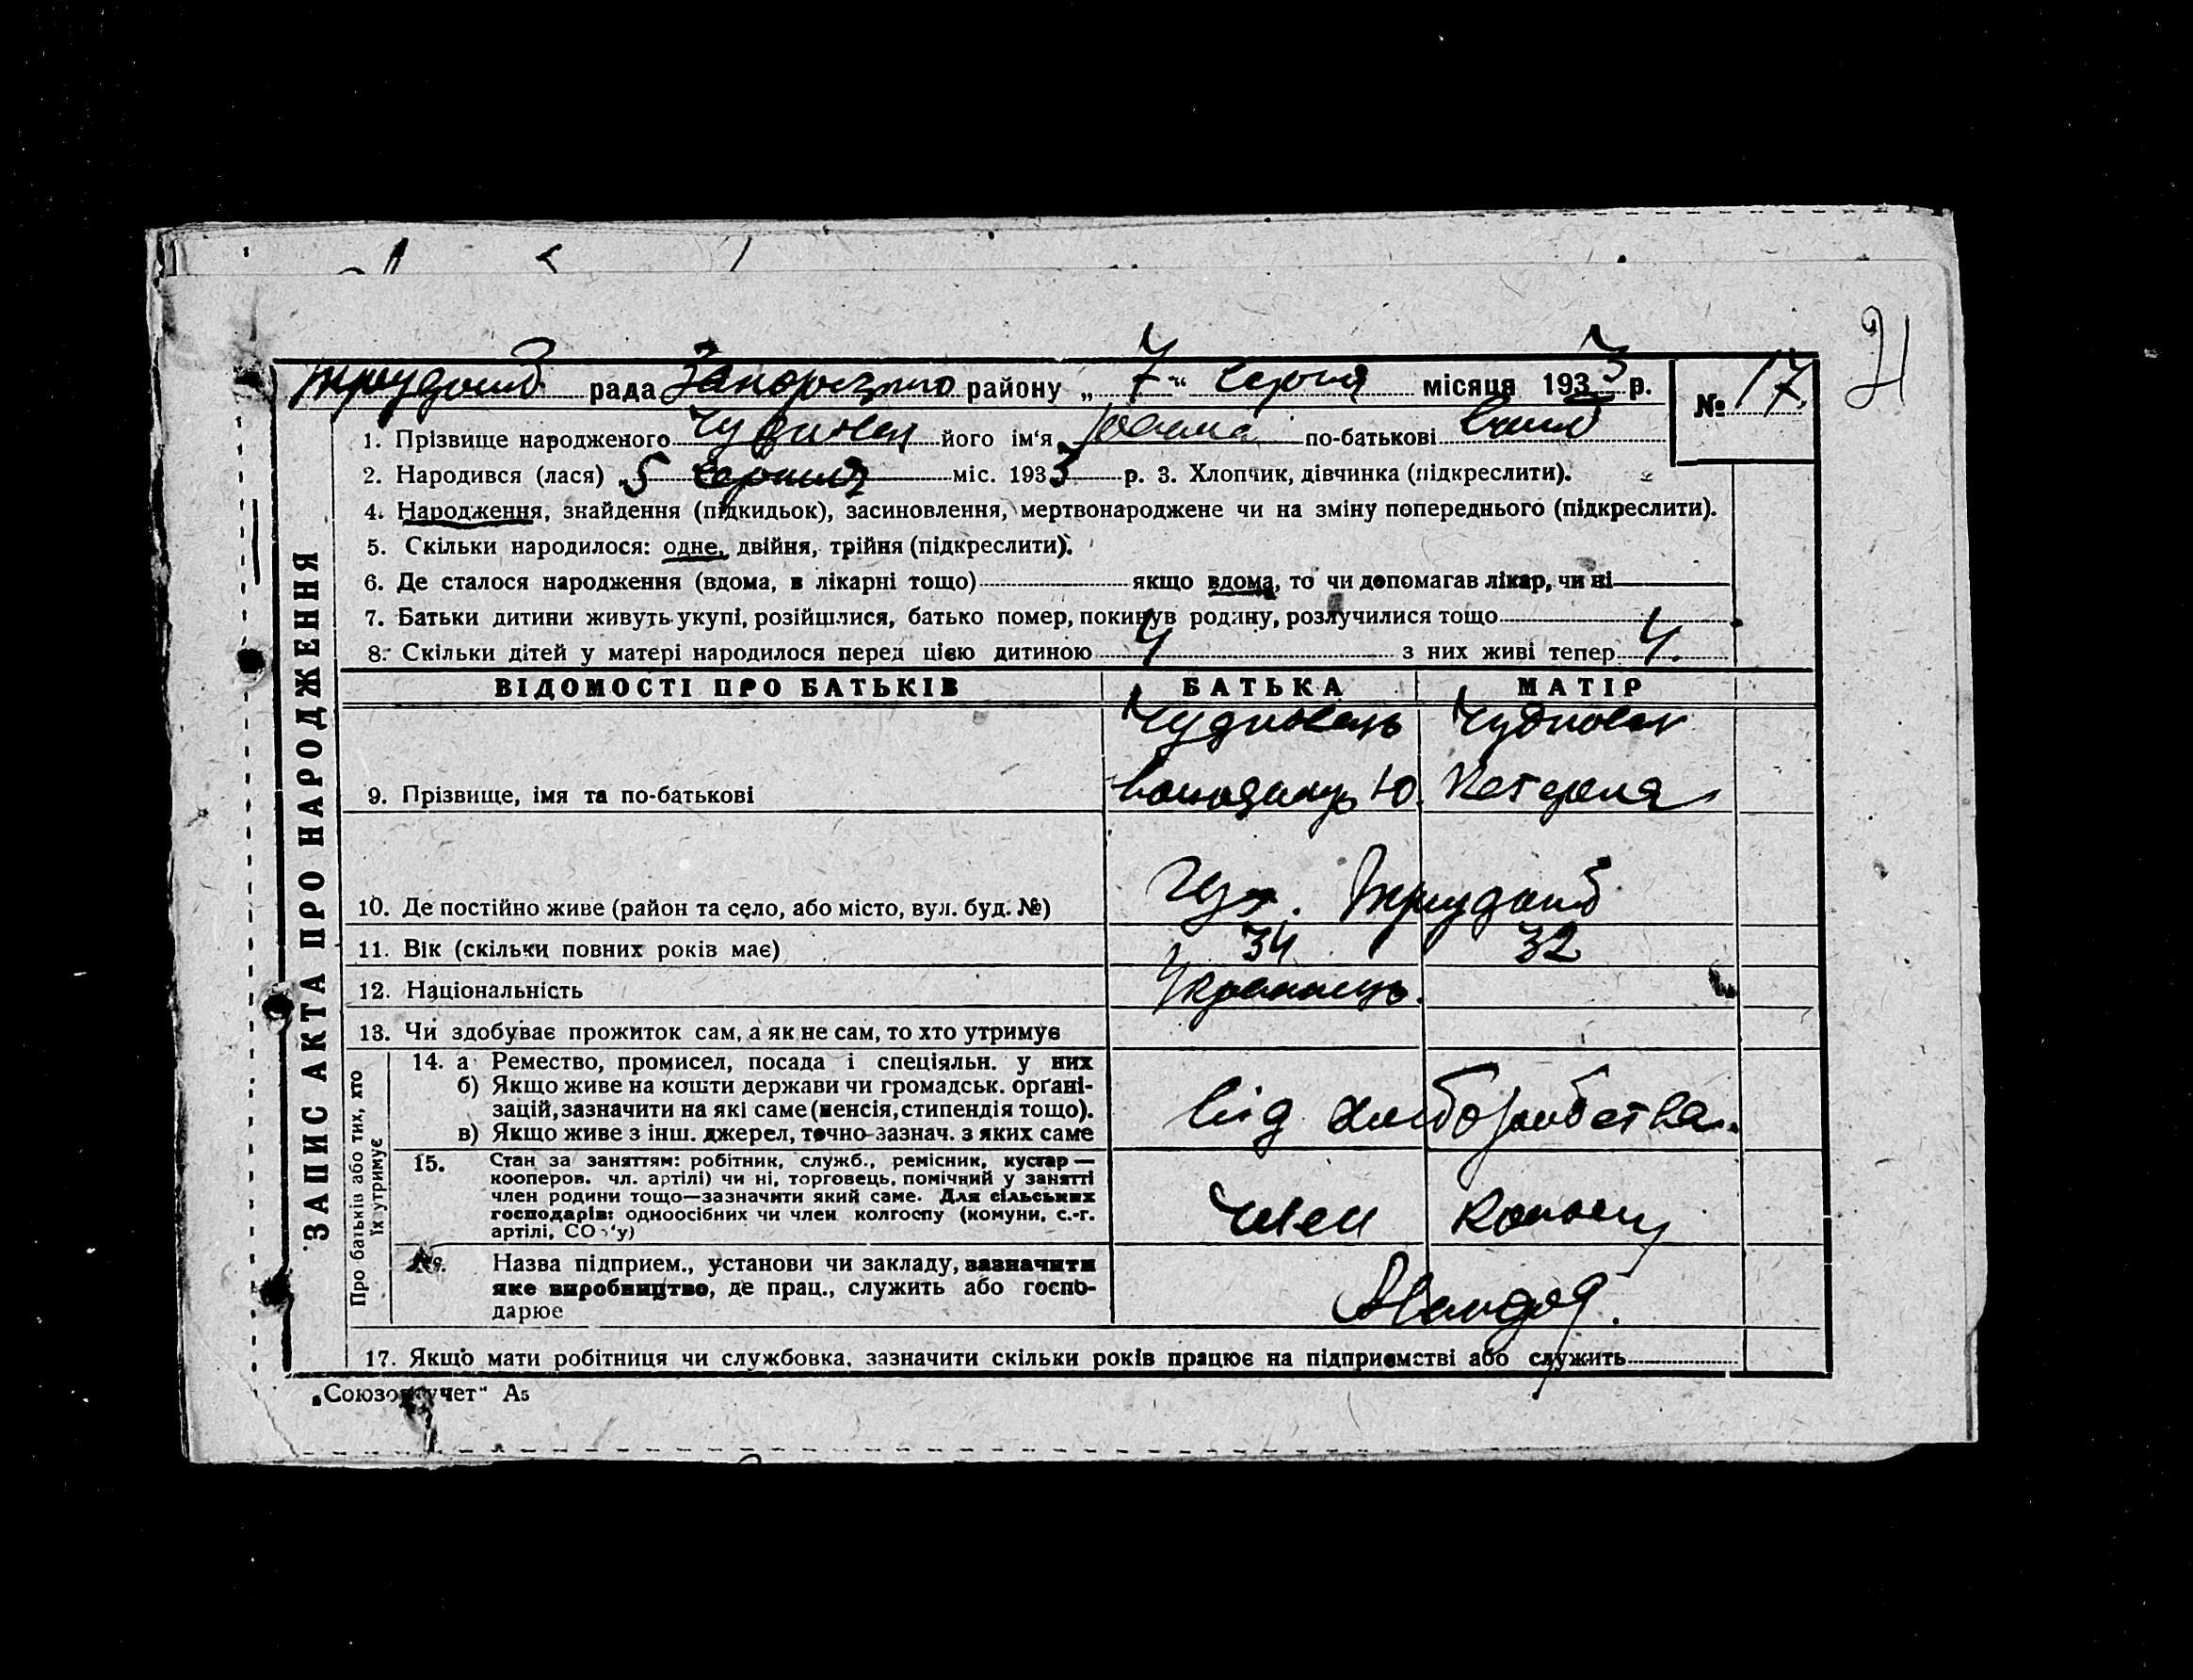 21
рада Запорізького району „7“ Червня місяця 1933 р. № 17
1. Прізвище народженого Чудновец його ім‘я по-батькові
2. Народився (лася) 5 червня міс. 1933 р. 3. Хлопчик, дівчинка (підкреслити).
4. Народження, знайдення (підкидьок), засиновлення, мертвонароджене чи на зміну попереднього (підкреслити).
5. Скільки народилося: одне, двійня, трійня (підкреслити).
6. Де сталося народження (вдома, в лікарні тощо) якщо вдома, то чи допомагав лікар, чи ні
7. Батьки дитини живуть укупі, розійшлися, батько помер, покинув родину, розлучилися тощо
8. Скільки дітей у матері народилося перед цією дитиною 4 з них живі тепер 4.
ЗАПИС АКТА ПРО НАРОДЖЕННЯ
ВІДОМОСТІ ПРО БАТЬКІВ БАТЬКА МАТІР
Чудновець Чудновец
9. Прізвище, імя та по-батькові Ю. Катерена
10. Де постійно живе (район та село, або місто, вул. буд. №) Хут.
11. Вік (скільки повних років має) 34 32
12. Національність Українець.
13. Чи здобуває прожиток сам, а як не сам, то хто утримує
Про батьків або тих, хто
їх утримує
14. а Ремество, промисел, посада і спеціяльн. у них
б) Якщо живе на кошти держави чи громадськ. орґані-
зацій, зазначити на які саме (пенсія, стипендія тощо).
в) Якщо живе з інш. джерел, точно зазнач. з яких саме
від хліборобства.
15. Стан за заняттям: робітник, служб., ремісник, кустар—
кооперов. чл. артілі) чи ні, торговець, помічний у занятті
член родини тощо—зазначити який саме. Для сільських
господарів: одноосібних чи член колгоспу (комуни, с.-г.
артілі, СО 'у)
член
№. Назва підприєм., установи чи закладу, зазначити
яке виробництво, де прац., служить або госпо-
дарює
17. Якщо мати робітниця чи службовка, зазначити скільки років працює на підприємстві або служить
„Союзоргучет“ А5